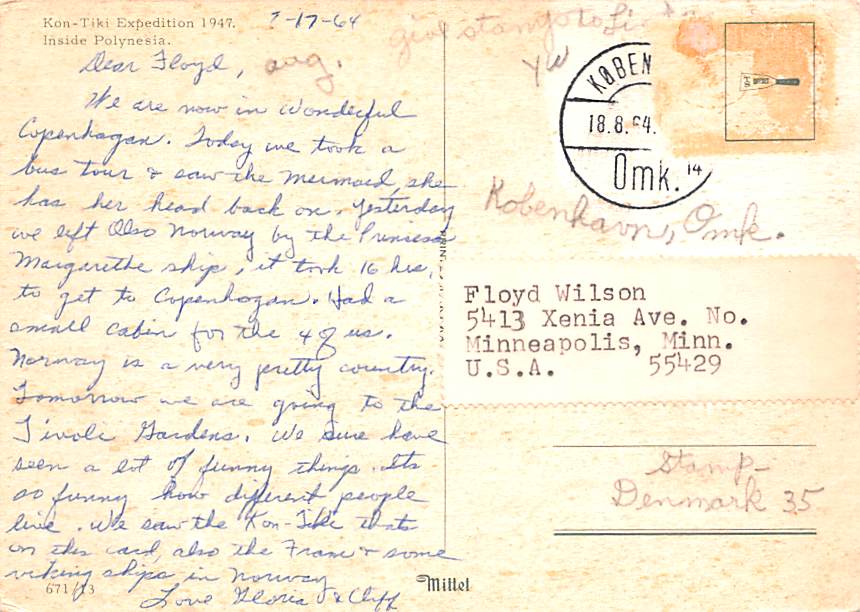 Kon-Tiki Expedition 1947.
Inside Polynesia.
7-17-64
Dear Floyd, aug.
We are now in wonderful
Copenhagan. Today we took a
bus tour & saw the mermaid, she
has her head back on. Yesterday
we left Oslo Norway by the Prinsesse
Margarethe ship, it took 16 hrs,
to get to Copenhagan. Had a
small cabin for the 4 of us.
Norway is a very pretty country.
Tomorrow we are going to the
Tivoli Gardens. We sure have
seen a lot of funny things. Its
so funny how different people
live. We saw the Kon-Tiki thats
on this card, also the Fram & some
viking ships in Norway
Love Gloria & Cliff
671/13
Mittet
give stamps to
YW
KØBEN
18.8.64.
14
Omk.
København, Omk.
Floyd Wilson
5413 Xenia Ave. No.
Minneapolis, Minn.
U.S.A. 55429
Stamp-
Denmark 35